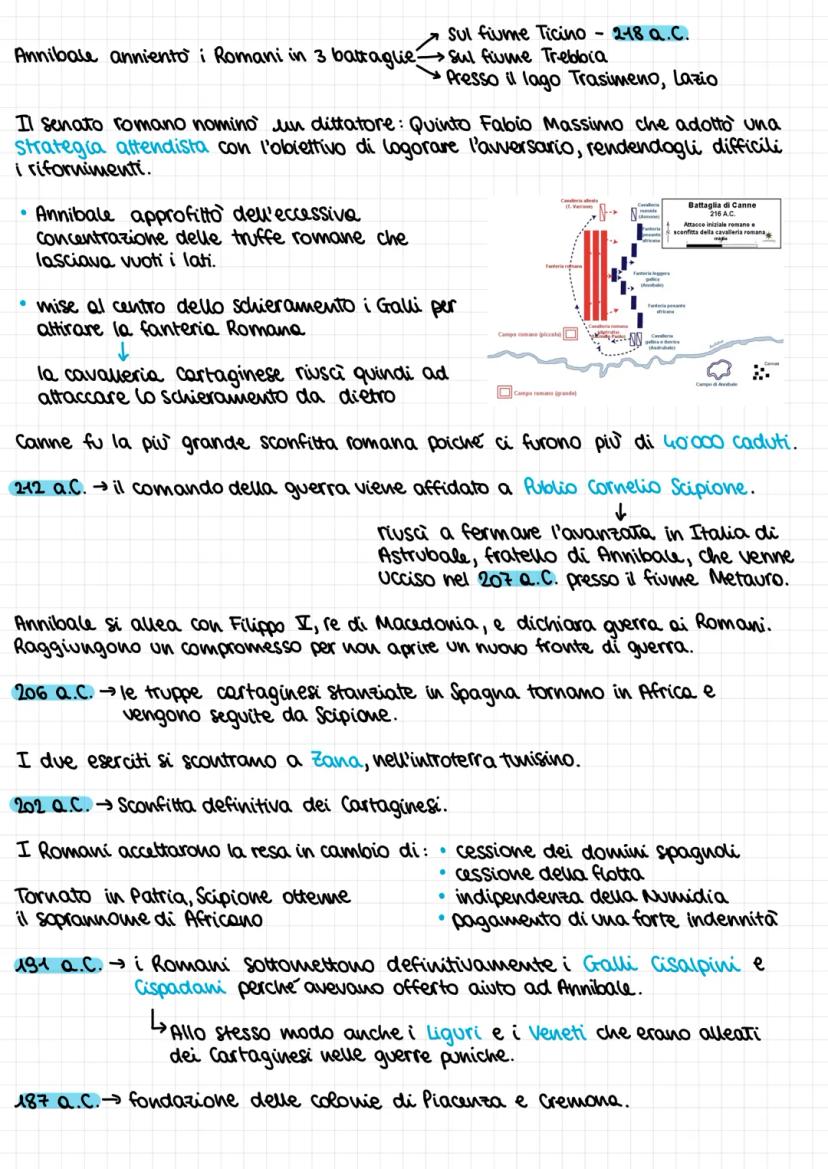 Annibale annientò i Romani in 3 battaglie
sul fiume Ticino - 218 a.C.
sul fiume Trebbia
Presso il lago Trasimeno, Lazio
Il senato romano nominò un dittatore: Quinto Fabio Massimo che adottò una
strategia attendista con l'obiettivo di logorare l'avversario, rendendogli difficili
i rifornimenti.
• Annibale approfittò dell'eccessiva
concentrazione delle truffe romane che
lasciava vuoti i lati.
• mise al centro dello schieramento i Galli per
attirare la fanteria Romana
↓
la cavalleria Cartaginese riuscì quindi ad
attaccare lo schieramento da dietro
Battaglia di Canne
216 A.C.
Attacco iniziale romano e
sconfitta della cavalleria romana
miglia
Cavalleria alleata
(T. Varrone)
Cavalleria
numida
(Annone)
Fanteria
pesante
africana
Fanteria romana
Fanteria leggera
gallica
(Annibale)
Fanteria pesante
africana
Campo romano (piccolo)
Cavalleria romana
Cavalleria
gallica e iberica
(Asdrubale)
Campo di Annibale
Cannae
Campo romano (grande)
Canne fu la più grande sconfitta romana poiché ci furono più di 40'000 caduti.
212 a.C. → il comando della guerra viene affidato a Publio Cornelio Scipione.
↓
riuscì a fermare l'avanzata in Italia di
Astrubale, fratello di Annibale, che venne
ucciso nel 207 a.C. presso il fiume Metauro.
Annibale si allea con Filippo V, re di Macedonia, e dichiara guerra ai Romani.
Raggiungono un compromesso per non aprire un nuovo fronte di guerra.
206 a.C. → le truppe cartaginesi stanziate in Spagna tornano in Africa e
vengono seguite da Scipione.
I due eserciti si scontrano a Zana, nell'introterra tunisino.
202 a.C. → Sconfitta definitiva dei Cartaginesi.
I Romani accettarono la resa in cambio di: • cessione dei domini spagnoli
• cessione della flotta
• indipendenza della Numidia
• pagamento di una forte indennità
Tornato in Patria, Scipione ottenne
il soprannome di Africano
191 a.C. → i Romani sottomettono definitivamente i Galli Cisalpini e
Cispadani perché avevano offerto aiuto ad Annibale.
↳ Allo stesso modo anche i Liguri e i Veneti che erano alleati
dei Cartaginesi nelle guerre puniche.
187 a.C. → fondazione delle colonie di Piacenza e Cremona.